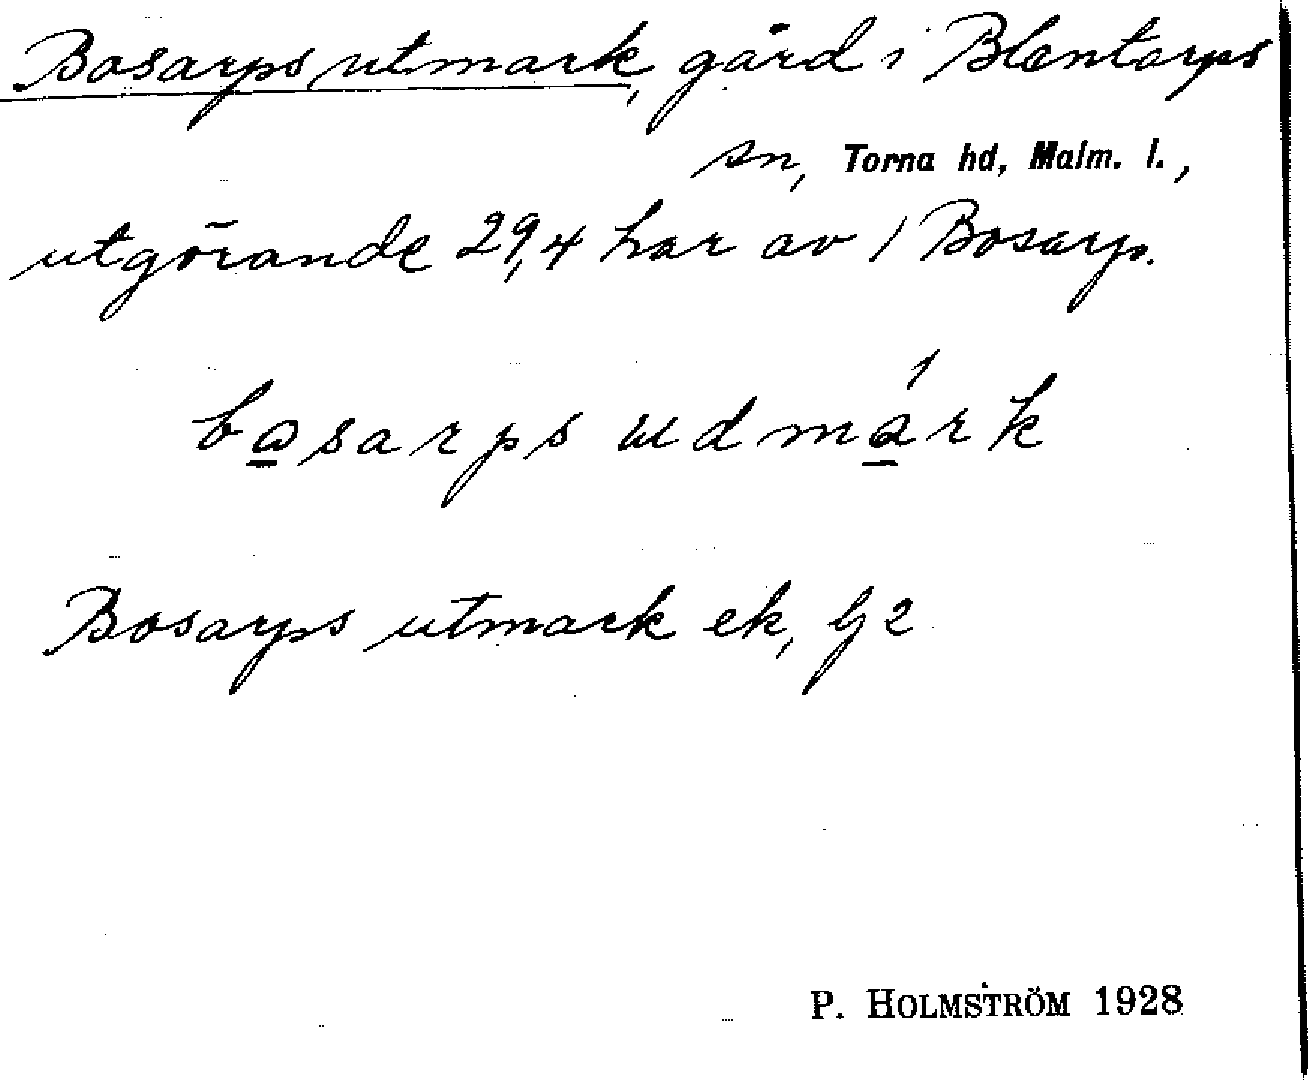 Bosarps utmark, gård i Blentarps
sn, Torna hd, Malm. l.,
utgörande 29,4 har av 1 Bosarp.
basarps udmárk
Bosarps utmark ek, bj 2
P. HOLMSTRÖM 1928